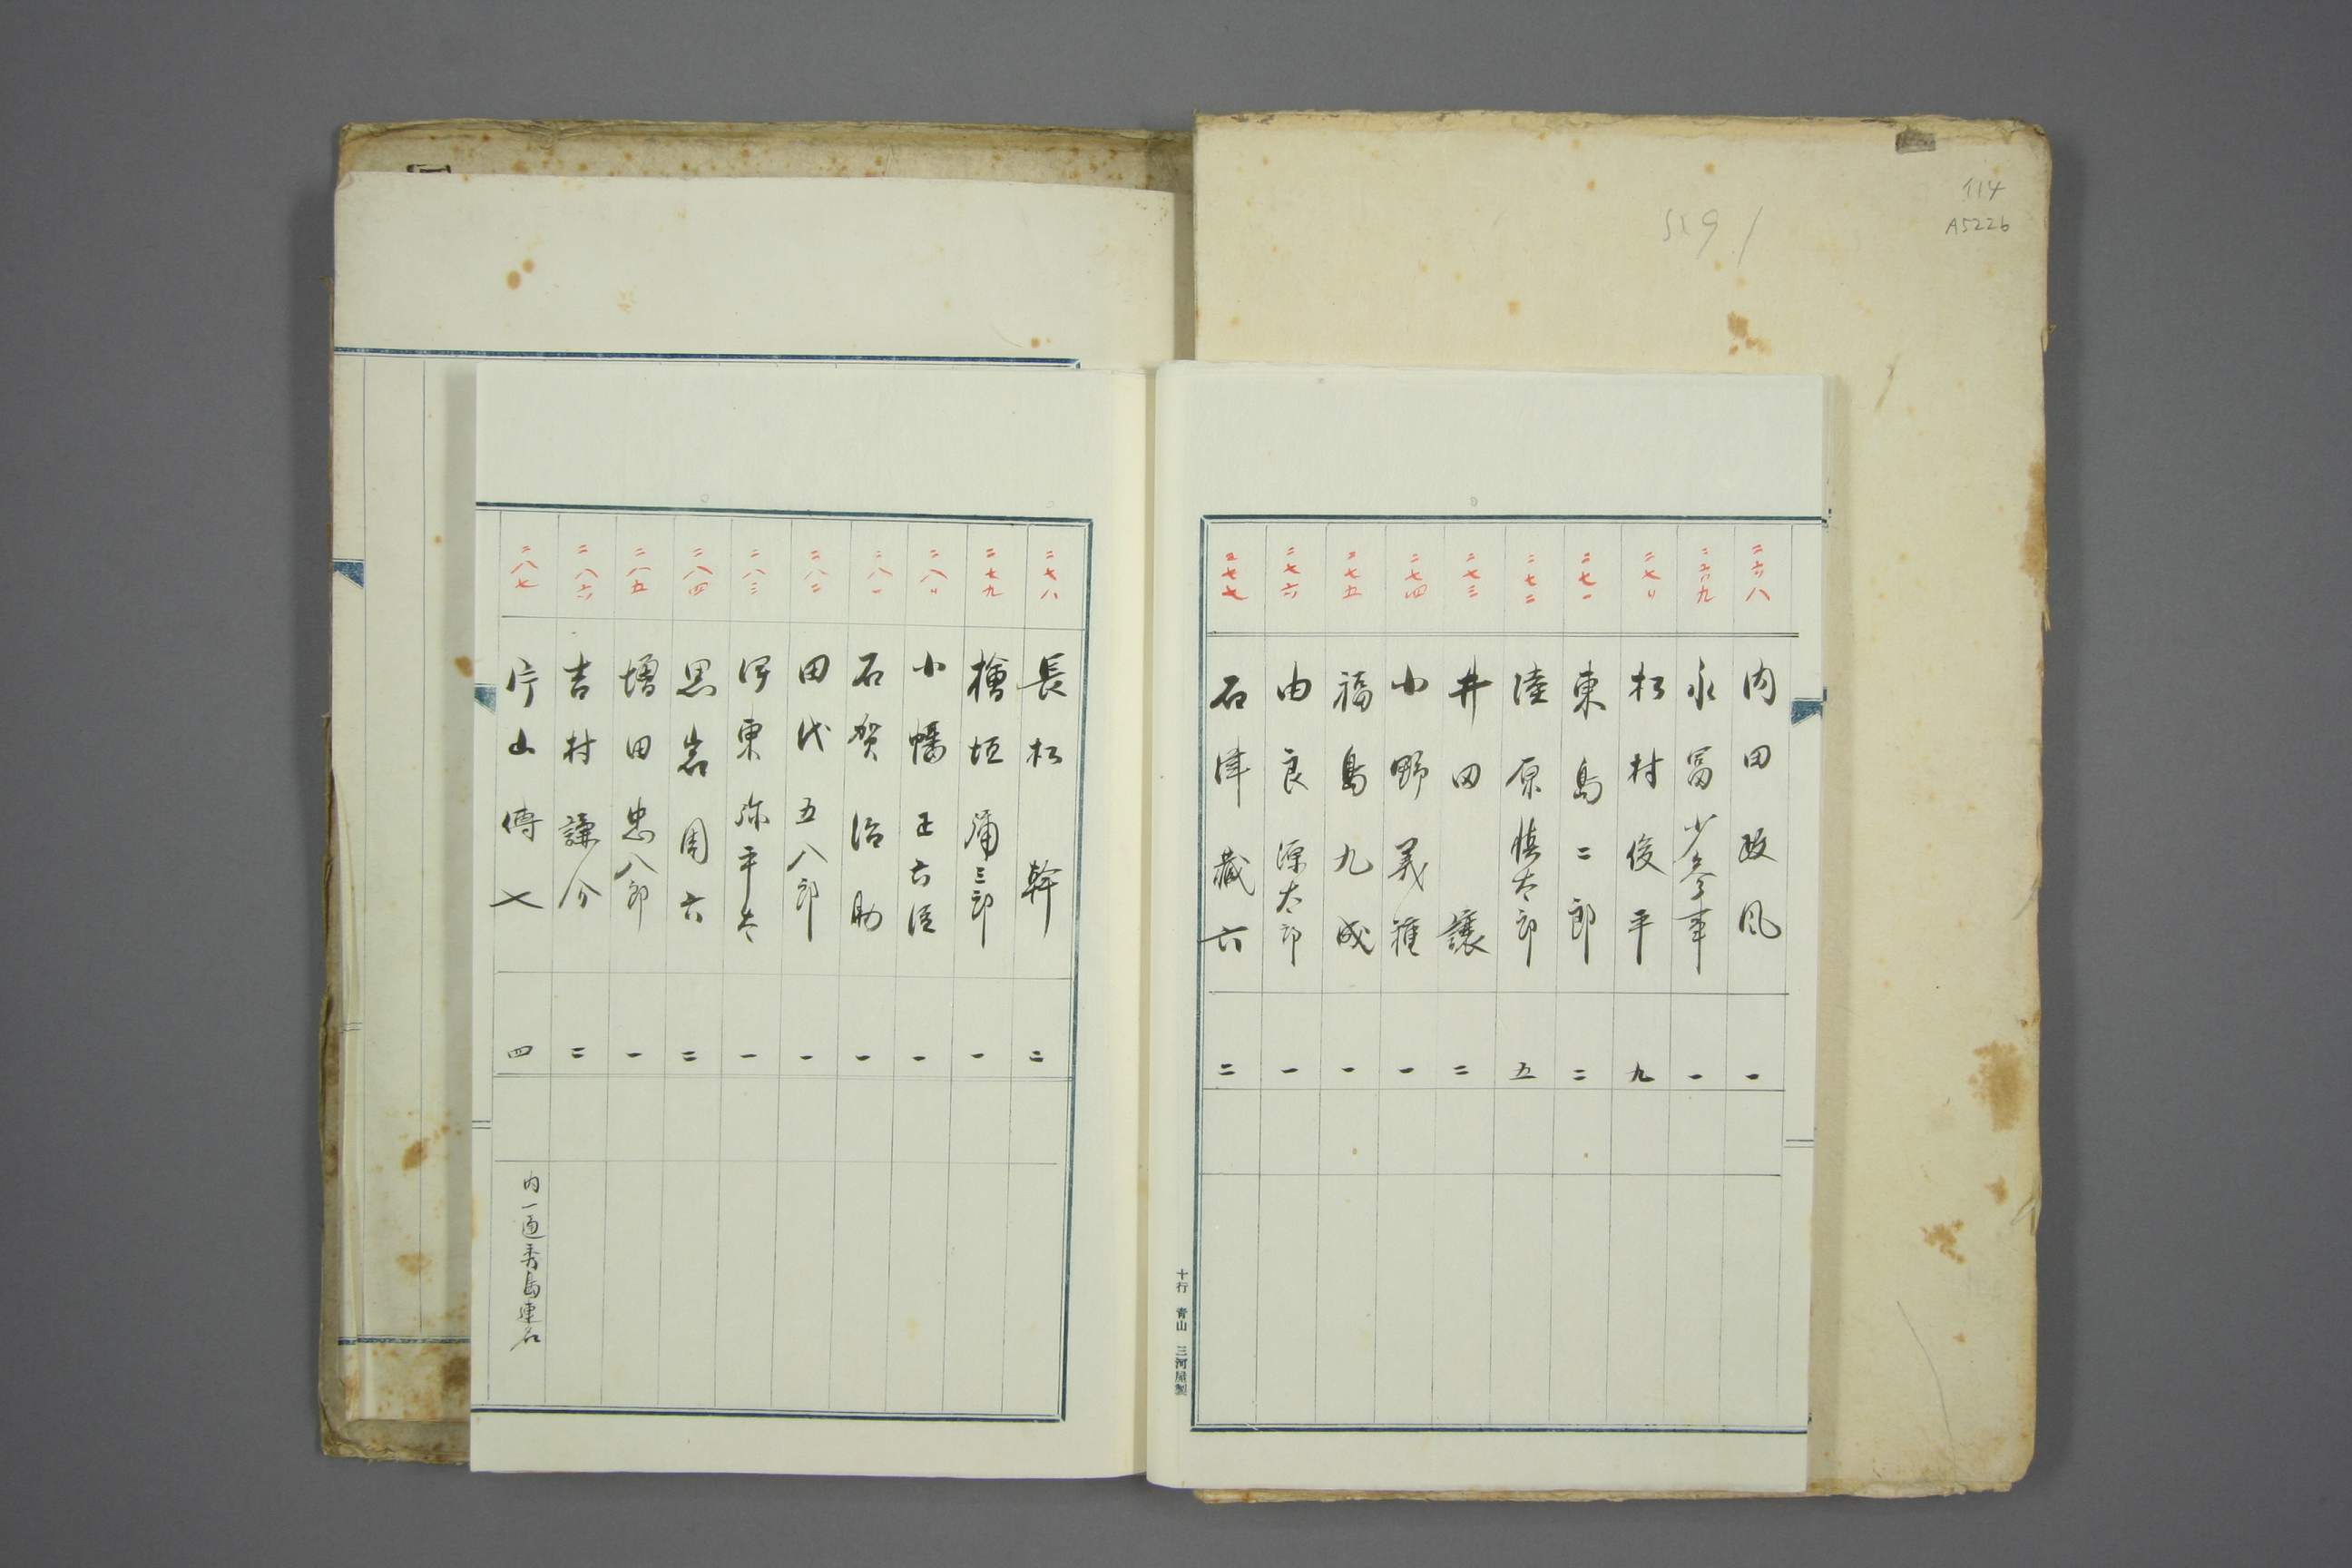 114
A5226
二六八 内田政風 一
二六九 永冨少参事 一
二七〃 松村俊平 九
二七一 東島二郎 二
二七二 陸原慎太郎 五
二七三 井田譲 二
二七四 小野義種 一
二七五 福島九成 一
二七六 由良源太郎 一
二七七 石津蔵六 二
十行 青山 三河屋製
二七八 長松幹 二
二七九 檜垣弥三郎 一
二八〃 小幡正 一
二八一 石賀治助 一
二八二 田代五八郎 一
二八三 伊東弥平太 一
二八四 黒岩周六 二
二八五 増田忠八郎 一
二八六 吉村謙介 二
二八七 片山傳七 四 内一通秀島連名